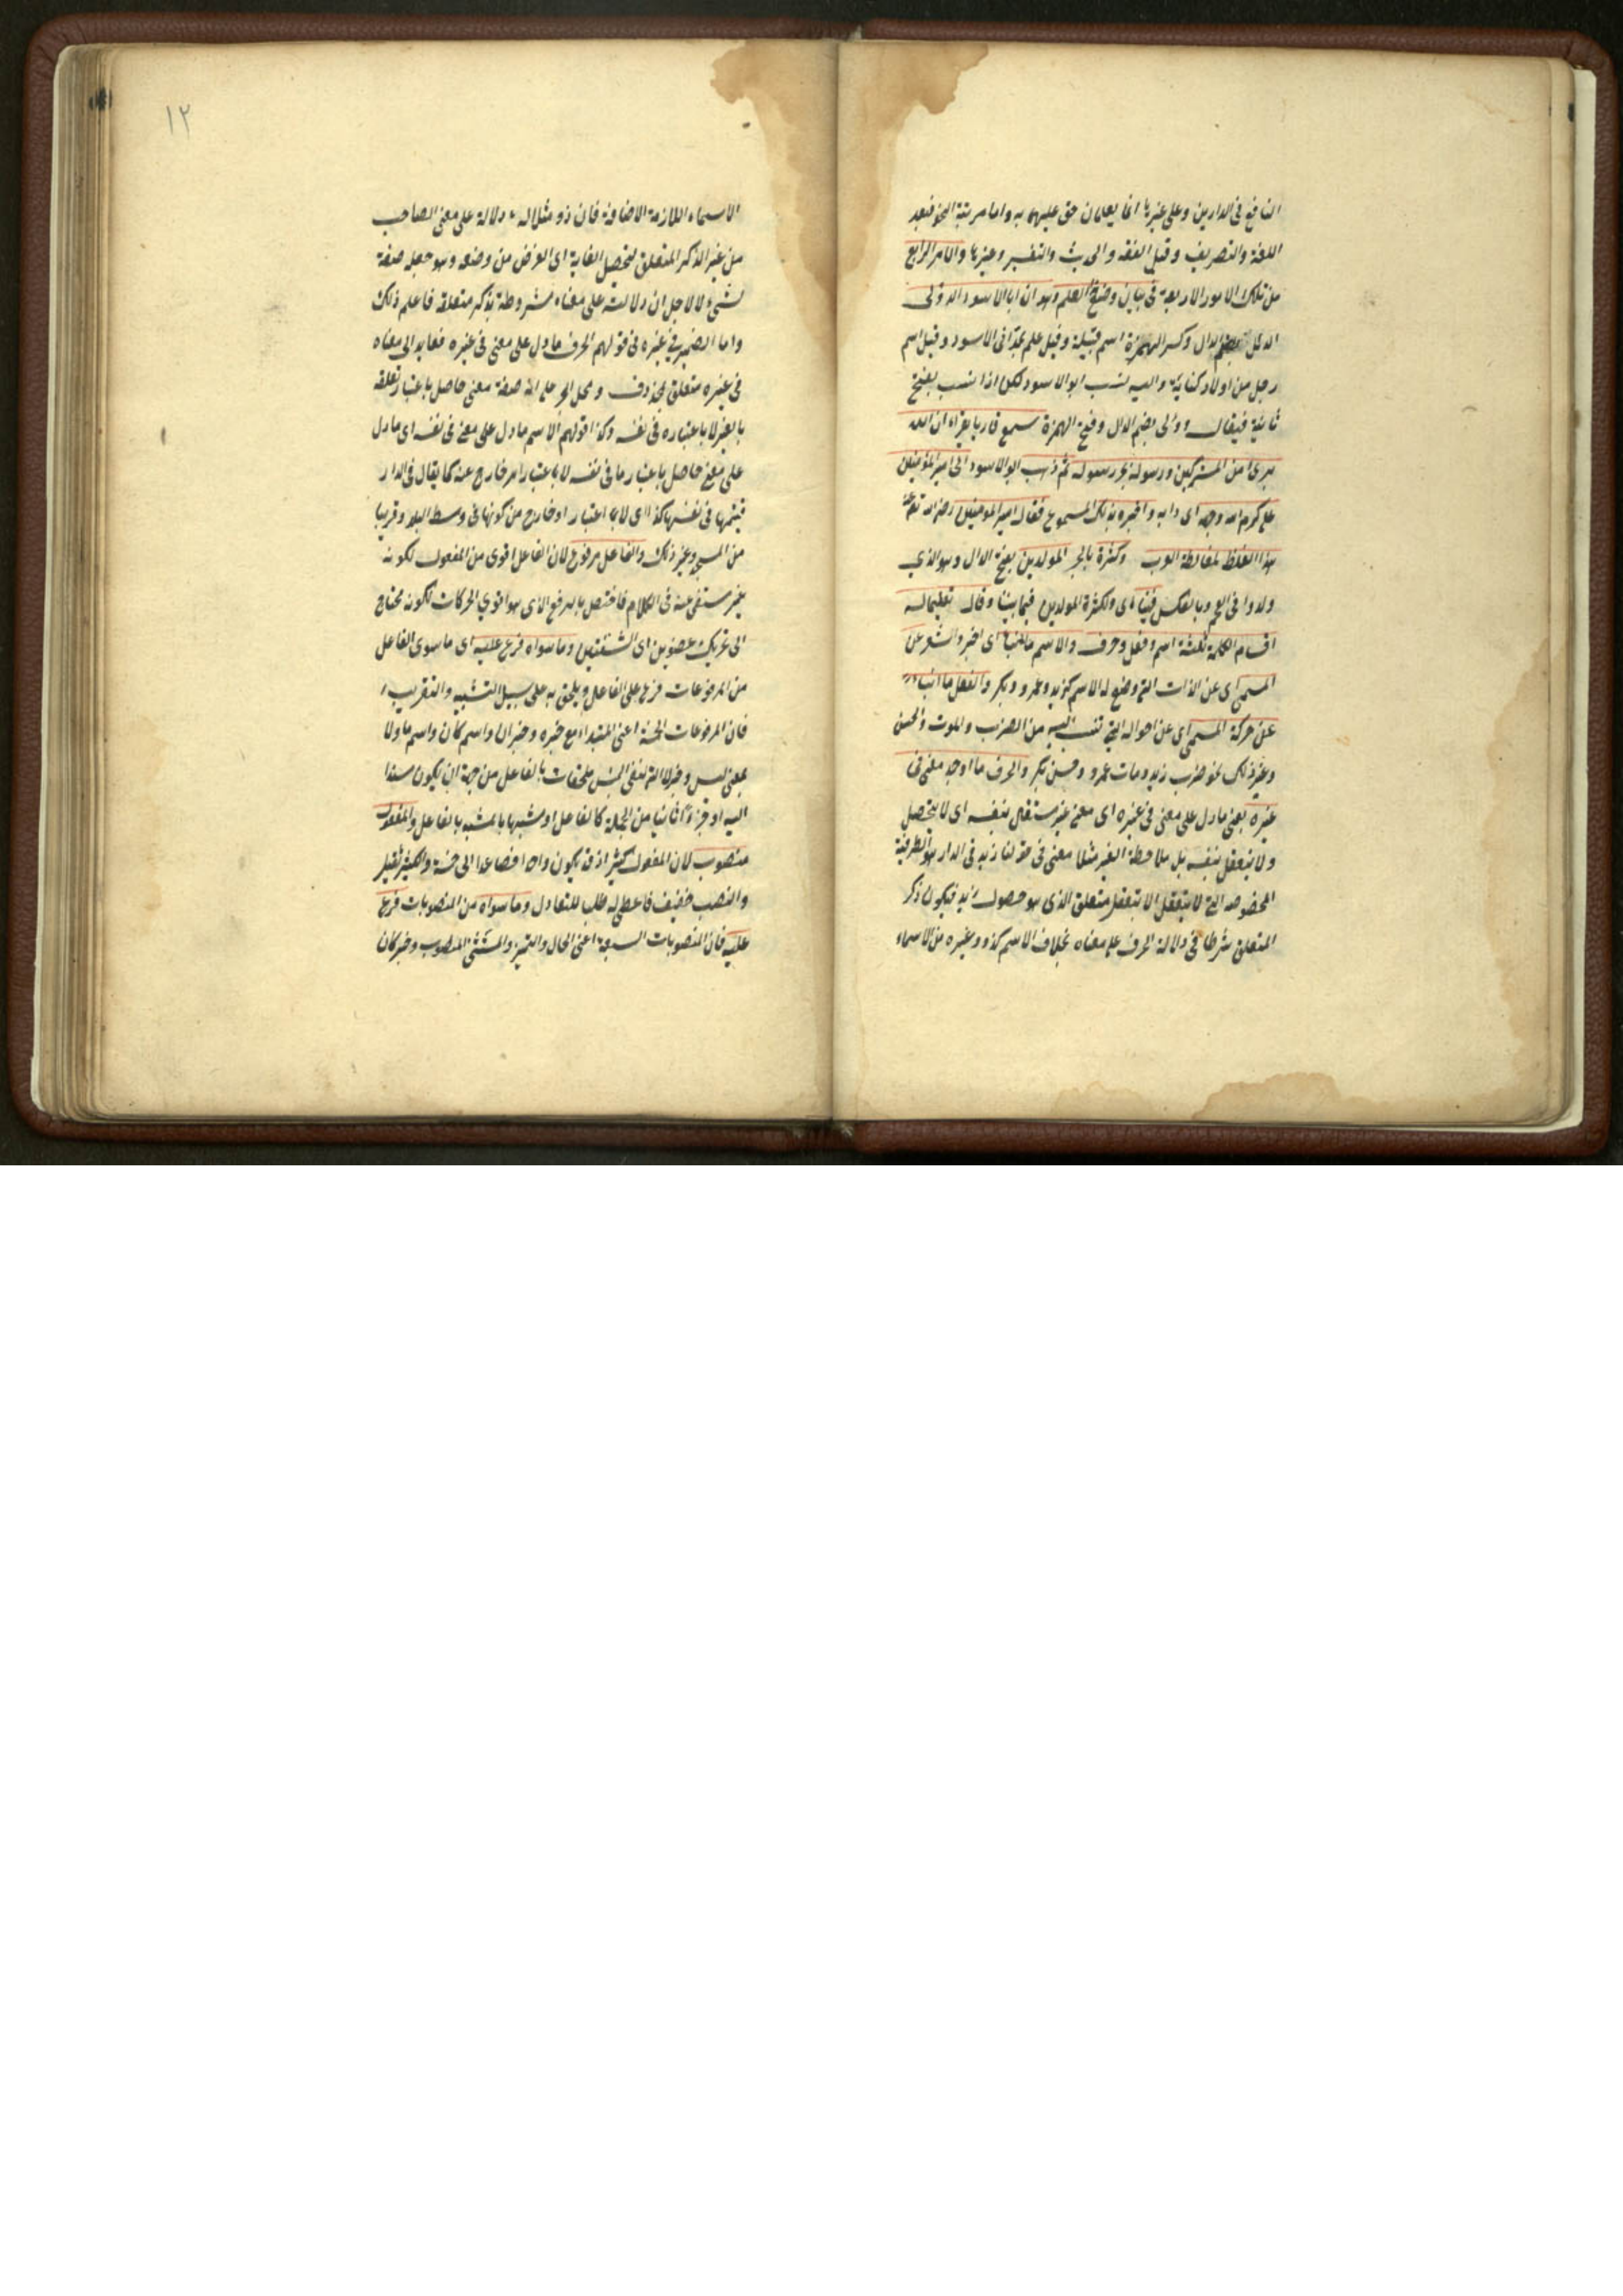 النافع فى الدارين وعلى غيرها انما يعلمان حق عليهما به واما مرتبة النحو فبعد
اللغة والتصريف وقبل الفقه والحديث والتفسير وغيرها والامر الرابع
من تلك الامور الاربعة فى بيان وضع العلم وهو ان ابا الاسود الدؤلى
الدئل بضم الدال وكسر الهمزة اسم قبيلة وقيل علم ابى الاسود وقيل اسم
رجل من اولاد كنانة واليه نسب ابو الاسود لكن اذا نسب يفتح
ثانية فيقال دؤلى بضم الدال وفتح الهمزة سمع قاريا يقراء ان الله
برئ من المشركين ورسوله بجر رسوله ثم ذهب ابو الاسود الى امير المؤمنين
على كرم الله وجهه اى اتى به واخبره بذلك المسموع فقال امير المؤمنين رضى الله تع عنه
هذا الغلط لمخالطة العرب وكثرة بالجر المولدين بفتح الدال وهو الذي
ولدوا فى العجم وبالعكس فينا اى ولكثرة المولدين فيما بيننا وقال تعليما له
اقسام الكلمة ثلثة اسم وفعل وحرف والاسم ما انبأ اى اخبر واشعر عن
المسمى اى عن الذات التى وضع له الاسم كزيد وعمرو وبكر والفعل ما انباء
عن حركة المسمى اى عن احواله التى تنسب اليه من الضرب والموت والحسن
وغير ذلك نحو ضرب زيد ومات عمرو وحسن بكر والحرف ما اوجد معنى فى
غيره يعنى ما دل على معنى فى غيره اى معنى غير مستقل بنفسه اى لا يتحصل
ولا يتعقل بنفسه بل ملاحظة الغير مثلا معنى فى فى قولنا زيد فى الدار هو الظرفية
المخصوصة التى لا يتعقل الا بتعقل متعلق الذى هو حصول زيد فيكون ذكر
المتعلق شرطا فى دلالة الحرف على معناه بخلاف الاسم كذو وغيره من الاسماء
١٢
الاسماء اللازمة الاضافة فان ذو مثلا له دلالة على معنى الصاحب
من غير الذكر المتعلق لتحصيل الغاية اى الغرض من وضعه وهو جعله صفة
لشئ لا لاجل ان دلالته على معناه مشروطة بذكر متعلقه فاعلم ذلك
واما الضمير فى غيره فى قولهم الحرف ما دل على معنى فى غيره فعايد الى معناه
فى غيره متعلق بمحذوف ومحل الجر على انه صفة معنى حاصل باعتبار تعلقه
بالغير لا باعتباره فى نفسه وكذا قولهم الاسم ما دل على معنى فى نفسه اى ما دل
على معنى حاصل باعتبار ما فى نفسه لا باعتبار امر خارج عنه كما يقال فى الدار
قيمتها فى نفسها كذا اى لا باعتبار او خارج من كونها فى وسط البلد وقريبا
من المسجد وغير ذلك والفاعل مرفوع لان الفاعل اقوى من المفعول لكونه
غير مستغنى عنه فى الكلام فاختص بالرفع الذى هو اقوي الحركات لكونه محتاج
الى تحريك عضوين اى الشفتين وما سواه فرع عليه اى ما سوى الفاعل
من المرفوعات فرع على الفاعل ويلحق به على سبيل التشبيه والتقريب
فان المرفوعات الخمسة اعنى المبتداء مع خبره وخبر ان واسم كان واسم ما ولا
بمعنى ليس وخبر لا التى لنفى الجنس ملحقات بالفاعل من جهة ان يكون مسندا
اليه او جزءا ثانيا من الجملة كالفاعل او مشبها بالمشبه بالفاعل والمفعول
منصوب لان المفعول كثير اذ قد يكون واحدا فصاعدا الى خمسة والكثير ثقيل
والنصب خفيف فاعطى له طلبا للتعادل وما سواه من المنصوبات فرع
عليه فان المنصوبات السبعة اعنى الحال والتميز والمستثنى المنصوب وخبر كان